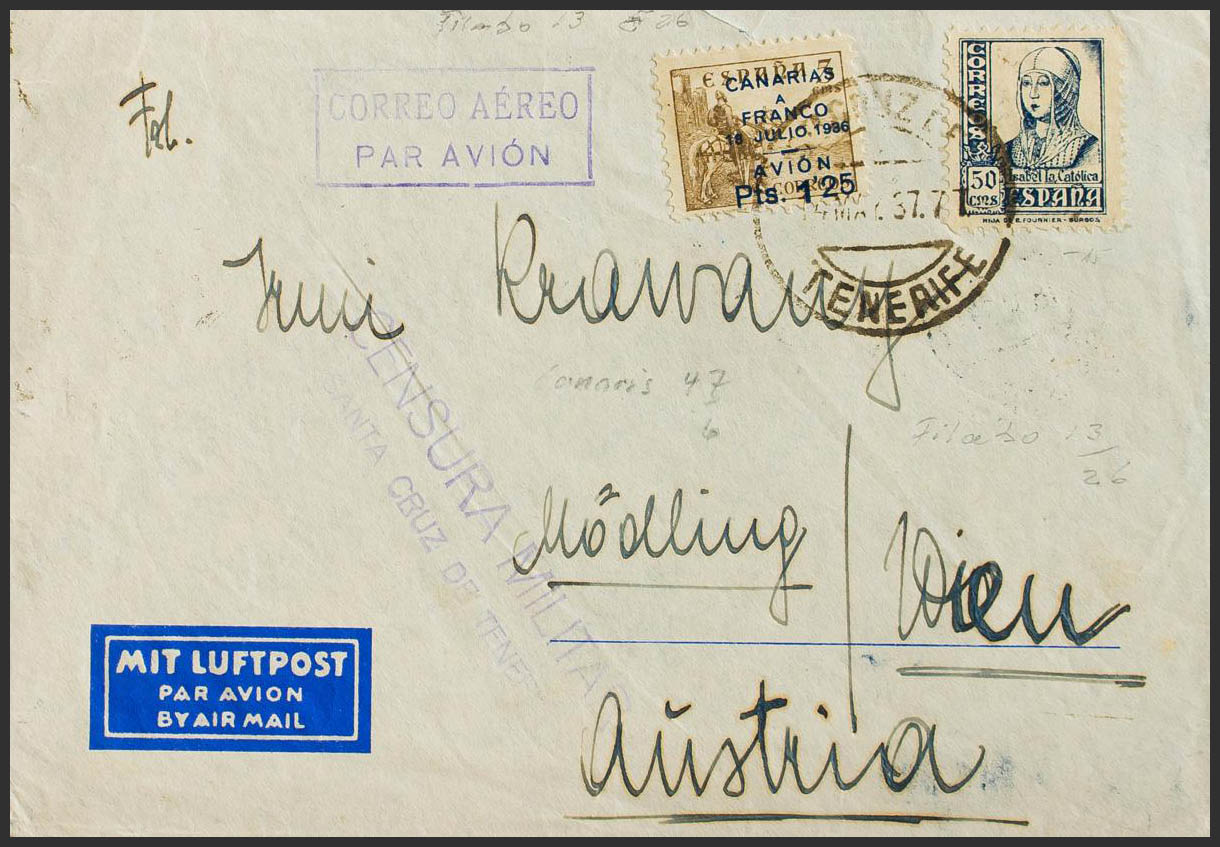 Filabo 13 26
Frl.
CORREO AÉREO
PAR AVIÓN
ESPAÑA
CANARIAS
A
FRANCO
18 JULIO.1936
AVIÓN
Pts. 1'25
CORREOS
CORREOS
50
cms
Isabel la Católica
ESPAÑA
HIJA DE E. FOURNIER - BURGOS
MAY. 37.
TENERIFE
CENSURA MILITAR
SANTA CRUZ DE TENER
Canaris 47
6
Filabo 13/
26
Mödling / Wien
Austria
MIT LUFTPOST
PAR AVION
BY AIR MAIL